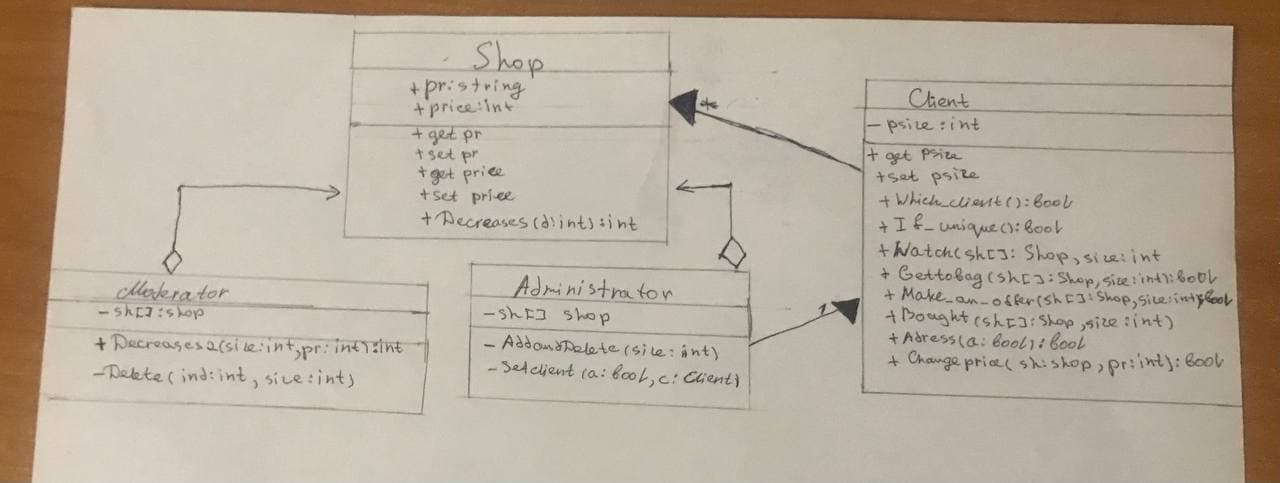 Shop
+ pr: string
+ price: int
+ get pr
+ set pr
+ get price
+ set price
+ Decreases (d: int): int
*
Client
- psize: int
+ get psize
+ set psize
+ Which_client(): bool
+ If_unique(): bool
+ Watch(sh[]: Shop, size: int
+ Gettobag(sh[]: Shop, size: int): bool
+ Make_an_offer(sh[]: Shop, size: int): bool
+ Bought (sh[]: Shop, size: int)
+ Adress (a: bool): bool
+ Change price( sh: shop, pr: int): bool
Moderator
- sh[]: shop
+ Decreases2(size: int, pr: int): int
- Delete( ind: int, size: int)
Administrator
- sh[] shop
- AddandDelete (size: int)
- Setclient (a: bool, c: Client)
1